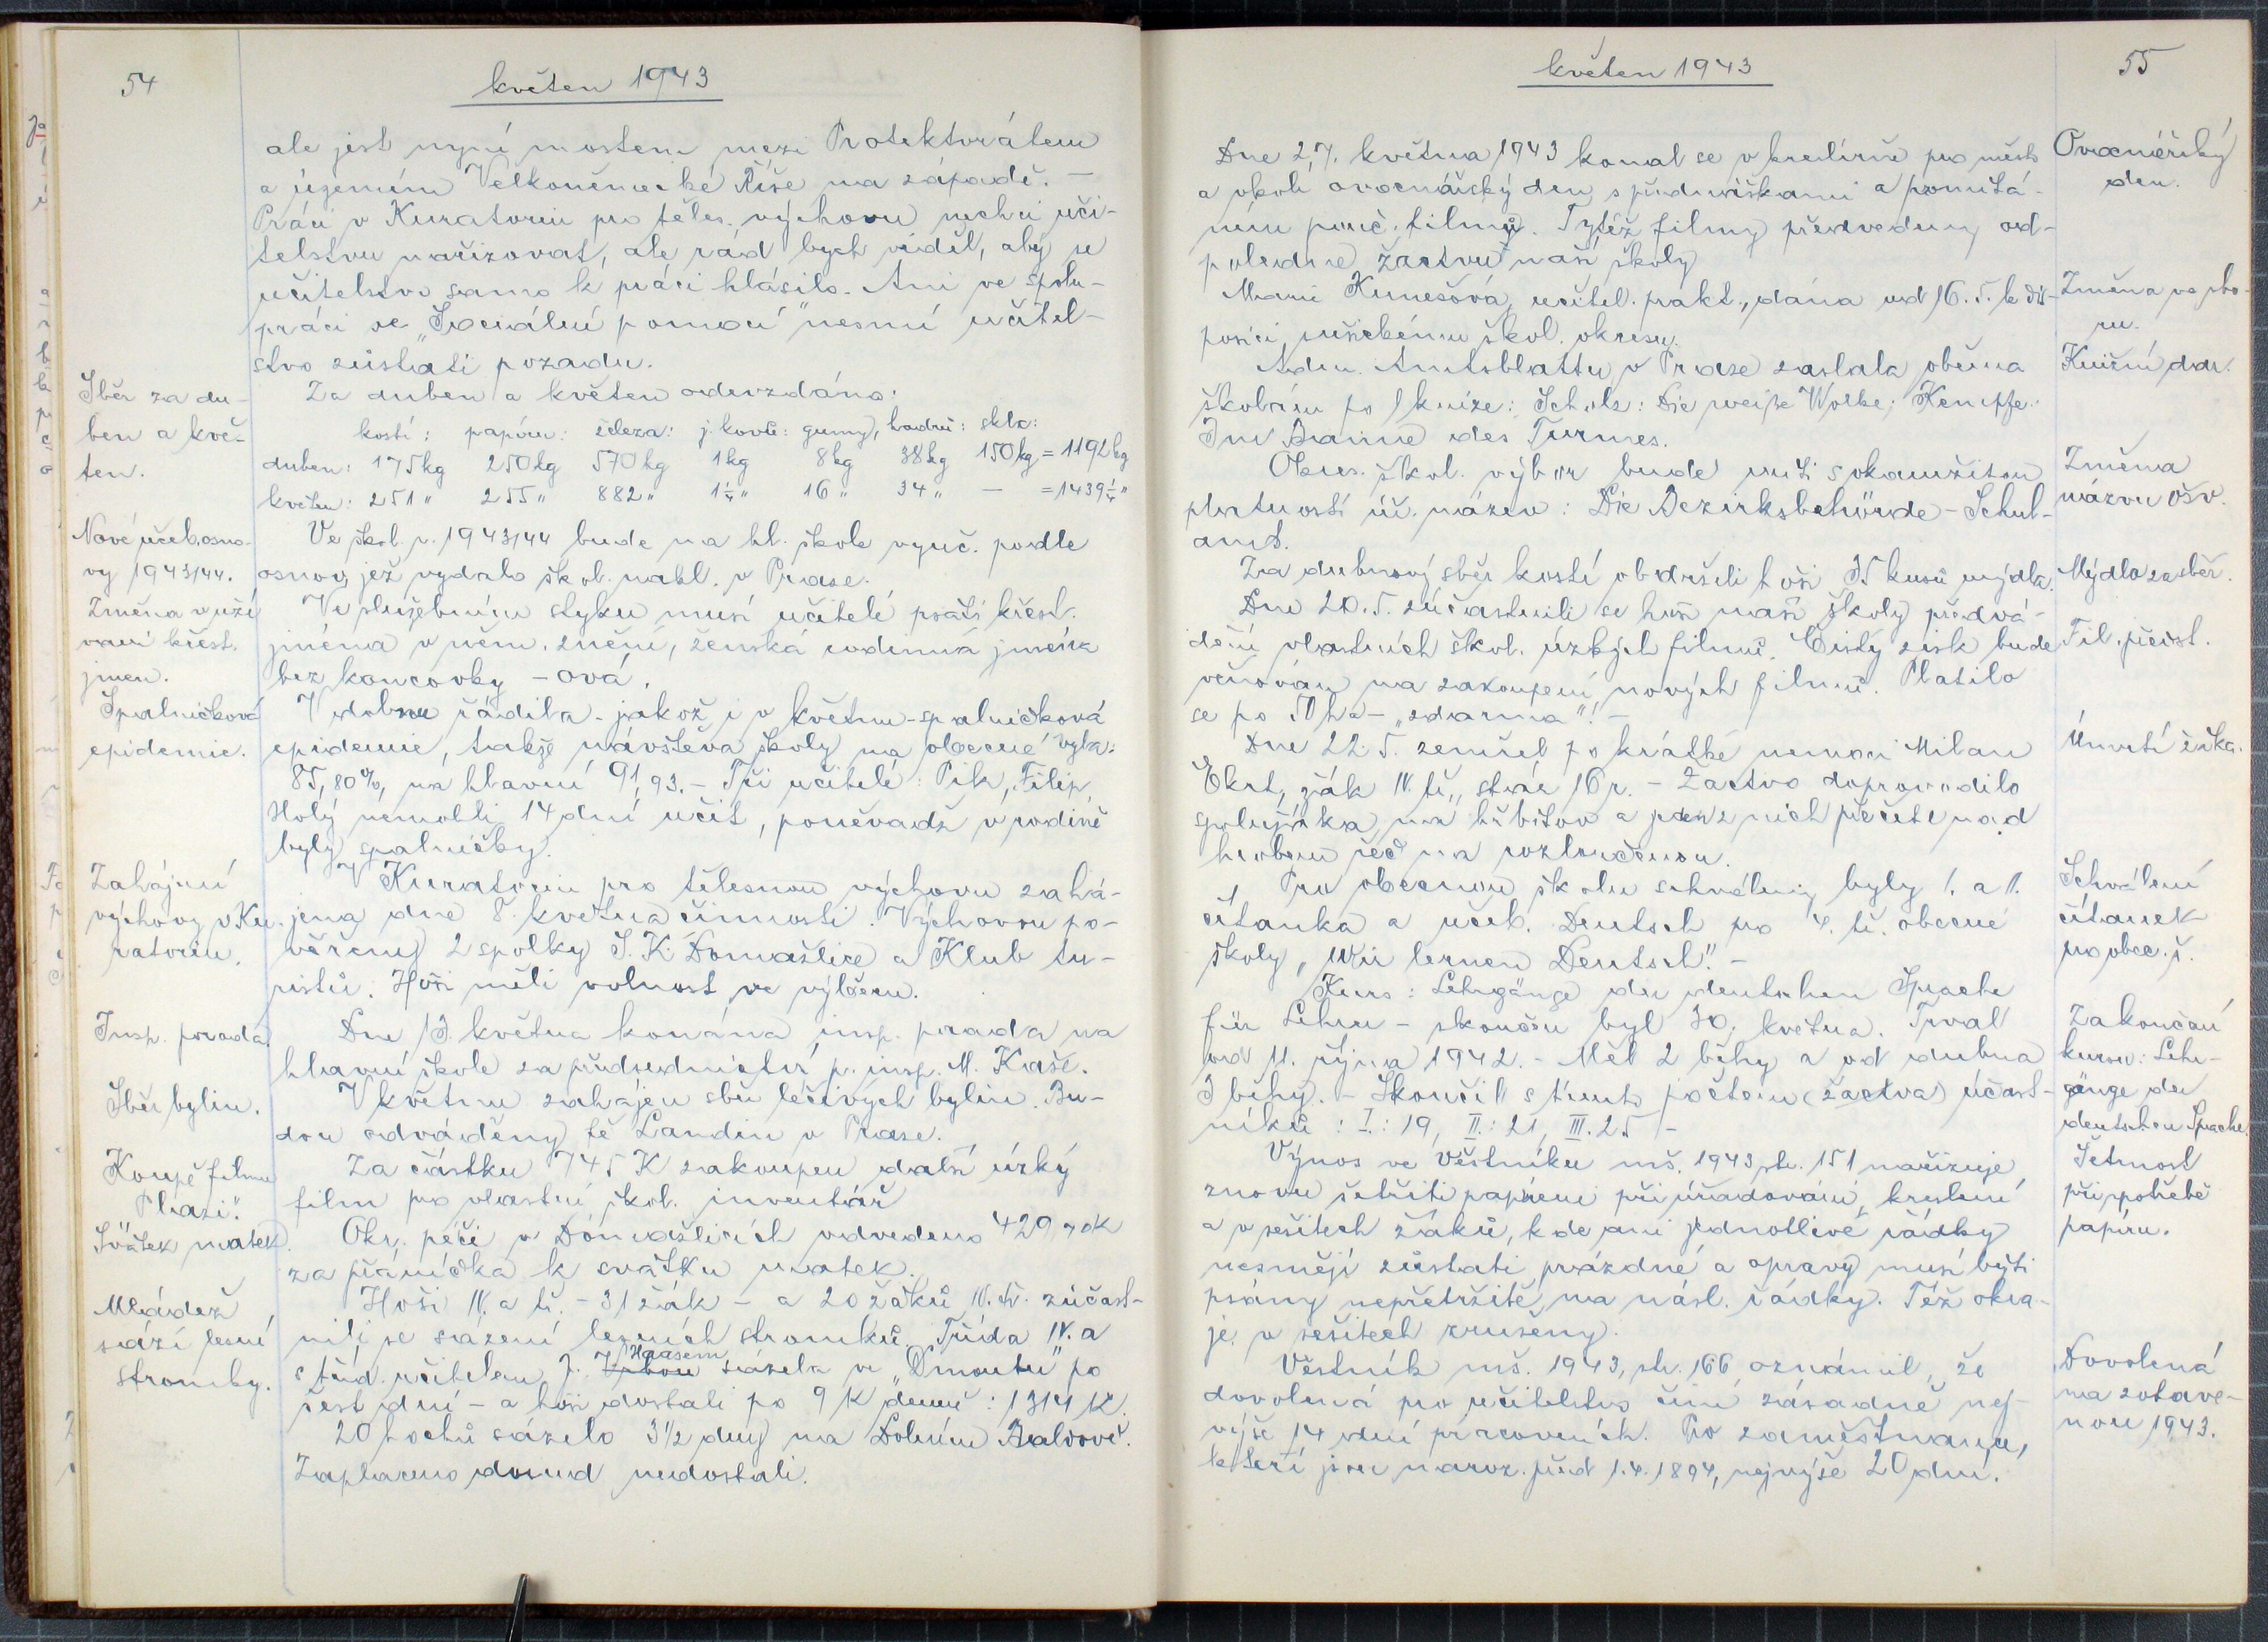 54
květen 1943
ale jest nyní mostem mezi Protektorátem
a územím Velkoněmecké Říše na západě. -
Práci v Kuratoriu pro těles. výchovu nechci uči-
telstvu nařizovat, ale rád bych viděl, aby se
učitelstvo samo k práci hlásilo. Ani ve spolu-
práci se "Sociální pomocí" nesmí učitel-
stvo zůstati pozadu.
Sběr za du-
ben a kvě-
ten.
Za duben a květen odevzdáno:
kostí: papíru: železa: j. kovů: gumy, hadrů: skla:
duben: 175kg 250kg 570kg 1kg 8kg 38kg 150kg = 1192kg
květen: 251" 255" 882" 1¼" 16" 34" — = 1439¼"
Nové učeb. osno-
vy 1943/44.
Ve škol. r. 1943/44 bude na hl. škole vyuč. podle
osnov, jež vydalo škol. nakl. v Praze.
Změna v uží
vání křest.
jmen.
Ve služebním styku musí učitelé psáti křest.
jména v něm. znění, ženská rodinná jména
bez koncovky - ová.
Spalničková
epidemie.
V dubnu řádila - jakož i v květnu - spalničková
epidemie, takže návštěva školy na obecné byla:
85,80%, na hlavní 91,93. - Tři učitelé: Pik, Filip,
Holý nemohli 14 dní učit, poněvadž v rodině
byly spalničky.
Zahájení
výchovy v Ku-
ratoriu.
V Kuratoriu pro tělesnou výchovu zahá-
jena dne 8. května činnosti. Výchovou po-
věřeny 2 spolky S. K. Domažlice a Klub tu-
ristů. Hoši měli volnost ve výběru.
Insp. porada
Dne 13. května konána insp. porada na
hlavní škole za předsednictví p. insp. M. Kaše.
Sběr bylin.
V květnu zahájen sběr léčivých bylin. Bu-
dou odváděny fě Landin v Praze.
Koupě filmu
"Plazi".
Za částku 745 K zakoupen další úzký
film pro vlastní škol. inventář
Svátek matek.
Okr. péči v Domažlicích odvedeno 420,70K
za přáníčka k svátku matek.
Mládež
sází lesní
stromky.
Hoši IV. a tř. - 31 žák - a 20 žáků IV. tř. zúčast-
nili se sázení lesních stromků. Třída IV. a
s tříd. učitelem J. Haasem sázela v "Dmoutu" po
šest dní - a hoši dostali po 9 K denně: 1314 K.
20 hochů sázelo 3½ dny na Dolním Baldově.
Zaplaceno dosud nedostali.
květen 1943
55
Dne 2.7. května 1943 konal se v kreslírně pro město
a okolí ovocnářský den s přednáškami a promítá-
ním pouč. filmů. Tytéž filmy předvedeny od-
poledne žactvu naší školy
Ovocnářský
den.
Marie Kunešová, učitel. prakt., dána od 16.5. k dis-
posici, sušickému škol. okresu.
Změna ve sbo-
ru.
Adm. Amtsblattu v Praze zaslala oběma
školám po 1 knize: Scholz: Die weiße Wolke; Kempfe:
Im Banne des Turmes.
Knižní dar.
Okres. škol. výbor bude míti s okamžitou
platností úř. název: Die Bezirksbehörde - Schul-
amt.
Změna
názvu OŠV.
Za dubnový sběr kostí obdrželi hoši 35 kusů mýdla.
Mýdlo za sběr.
Dne 20.5. zúčastnili se hoši naší školy předvá-
dění vlastních škol. úzkých filmů. Čistý zisk bude
věnován na zakoupení nových filmů. Platilo
se po 50 h - "zdarma"! -
Fil. předst.
Dne 22.5. zemřel po krátké nemoci Milan
Ekrt, žák IV. tř., stár 16 r. - Žactvo doprovodilo
spolužáka na hřbitov a jeden z nich přečetl nad
hrobem řeč na rozloučenou.
Úmrtí žáka.
Pro obecnou školu schváleny byly I. a II.
čítanka a učeb. Deutsch pro 4. tř. obecné
školy, "Wir lernen Deutsch". -
Schválení
čítanek
pro obec. š.
Kurs: Lehrgänge der deutschen Sprache
für Lehrer - skončen byl 30. května. Trval
od 11. října 1942. - Měl 2 běhy a od dubna
3 běhy. - Skončil s tímto počtem (žactva) účast-
níků: I.: 19, II.: 21, III. 25 -
Zakončení
kursu: Lehr-
gänge der
deutschen Sprache.
Výnos ve Věstníku mš. 1943, str. 151 nařizuje
znovu šetřiti papírem při úřadování, kreslení
a v sešitech žáků, kde ani jednotlivé řádky
nesmějí zůstati prázdné a opravy musí býti
psány nepřetržitě na násl. řádky. Též okra-
je v sešitech zrušeny.
Šetrnost
při spotřebě
papíru.
Věstník mš. 1943, str. 166, oznámil, že
dovolená pro učitelstvo činí zásadně nej-
výše 14 dní pracovních. Pro zaměstnance,
kteří jsou naroz. před 1.4.1894, nejvýše 20 dní.
Dovolená
na zotave-
nou 1943.